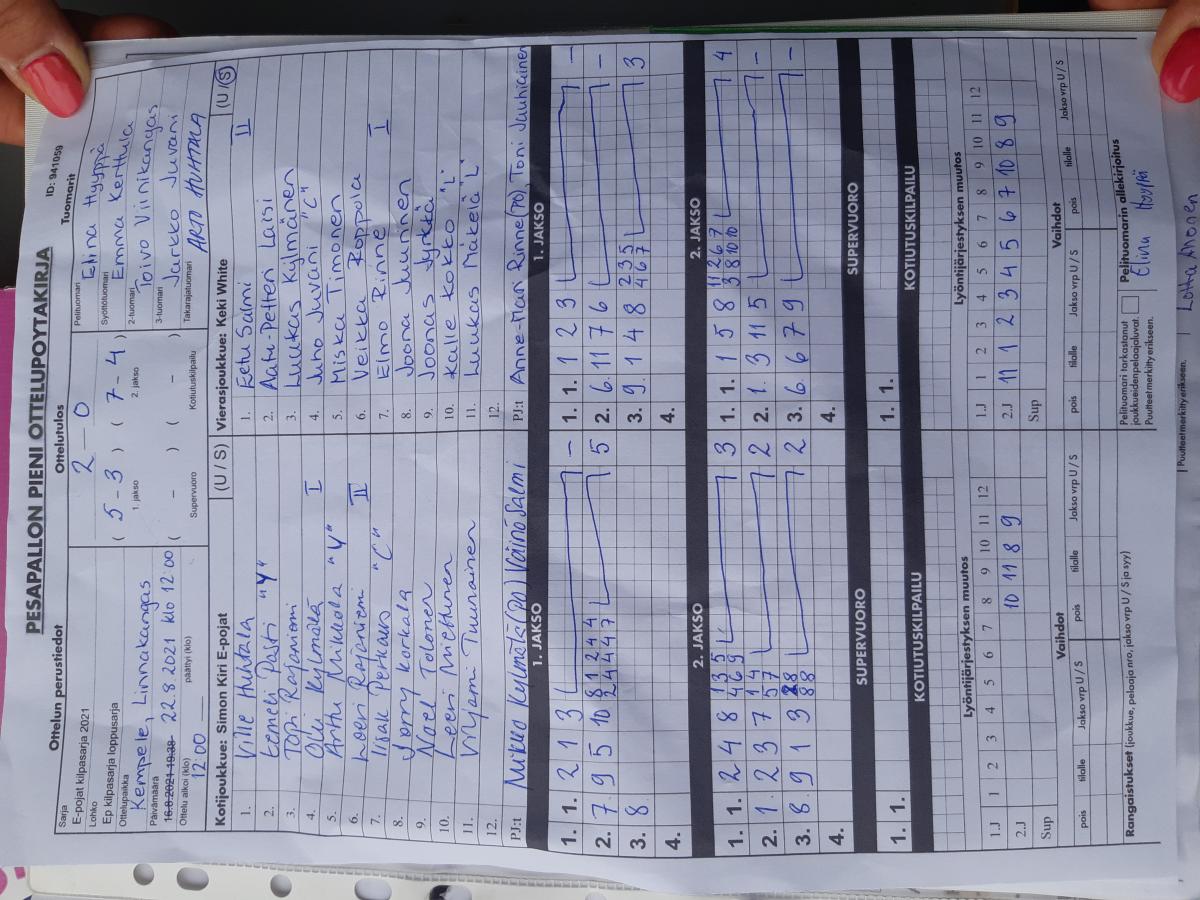 PESÄPALLON PIENI OTTELUPÖYTÄKIRJA ID: 941059
Ottelun perustiedot Ottelutulos Tuomarit
Sarja
E-pojat kilpasarja 2021
Lohko
Ep kilpasarja loppusarja
Ottelupaikka
Kempele, Linnakangas
Päivämäärä
16.8.2021 19:30 22.8.2021 klo 12:00
Ottelu alkoi (klo) päättyi (klo)
12:00
2 - 0
( 5 - 3 ) ( 7 - 4 )
1. jakso 2. jakso
( - ) ( - )
Supervuoro Kotiutuskilpailu
Pelituomari Elina Hyyppä
Syöttötuomari Emma Kerttula
2-tuomari Toivo Viinikangas
3-tuomari Jarkko Juvani
Takarajatuomari ARTO HUHTALA
Kotijoukkue: Simon Kiri E-pojat (U / S)
1. Ville Huhtala
2. Eemeli Pasti "Y"
3. Topi Rajaniemi
4. Olli Kylmälä I
5. Arttu Mikkola "Y"
6. Eeri Rajaniemi II
7. Iisak Perkaus "C"
8. Jorry Korkala
9. Noel Tolonen
10. Eeri Miettunen
11. Miami Tuunainen
12.
PJ:t Mikko Kylmälä (PO) Väinö Salmi
Vierasjoukkue: Keki White (U / S)
1. Eetu Salmi II
2. Aatu-Petteri Laisi
3. Luukas Kylmänen
4. Juho Juvani "C"
5. Miska Timonen
6. Veikka Roppola
7. Elmo Rinne I
8. Joona Juuninen
9. Joonas Jynkä
10. Kalle Kokko "L"
11. Luukas Mäkelä "L"
12.
PJ:t Anne-Mari Rinne (PO), Toni Jauhiainen
1. JAKSO 1. JAKSO
1. 1. 2 1 3 - 1. 1. 1 2 3 -
2. 7. 9 5 10 8 1 2 4 4 5 2. 6. 11 7 6 -
2 4 4 4 7
3. 8. 3. 9. 1 4 8 2 3 5 3
4 6 7
4. 4.
2. JAKSO 2. JAKSO
1. 1. 2 4 8 1 3 5 3 1. 1. 1 5 8 1 2 6 7 4
4 6 9 3 8 10 10
2. 1. 2 3 7 1 4 2 2. 1. 3 11 5 -
5 7
3. 8. 9 1 3 2 8 2 3. 6. 6 7 9 -
8 8
4. 4.
SUPERVUORO SUPERVUORO
1. 1. 1. 1.
KOTIUTUSKILPAILU KOTIUTUSKILPAILU
Lyöntijärjestyksen muutos Lyöntijärjestyksen muutos
1.J 1 2 3 4 5 6 7 8 9 10 11 12 1.J 1 2 3 4 5 6 7 8 9 10 11 12
2.J 10 11 8 9 2.J 11 1 2 3 4 5 6 7 10 8 9
Sup Sup
Vaihdot Vaihdot
pois tilalle Jakso vrp U / S pois tilalle Jakso vrp U / S pois tilalle Jakso vrp U / S pois tilalle Jakso vrp U / S
Rangaistukset (joukkue, pelaaja nro, jakso vrp U / S ja syy)
Pelituomari tarkastanut
joukkueiden pelaajaluvat.
Puutteet merkityt erikseen.
Pelituomarin allekirjoitus
Elina Hyyppä
Puutteet merkityt erikseen.
Lotta Ahonen